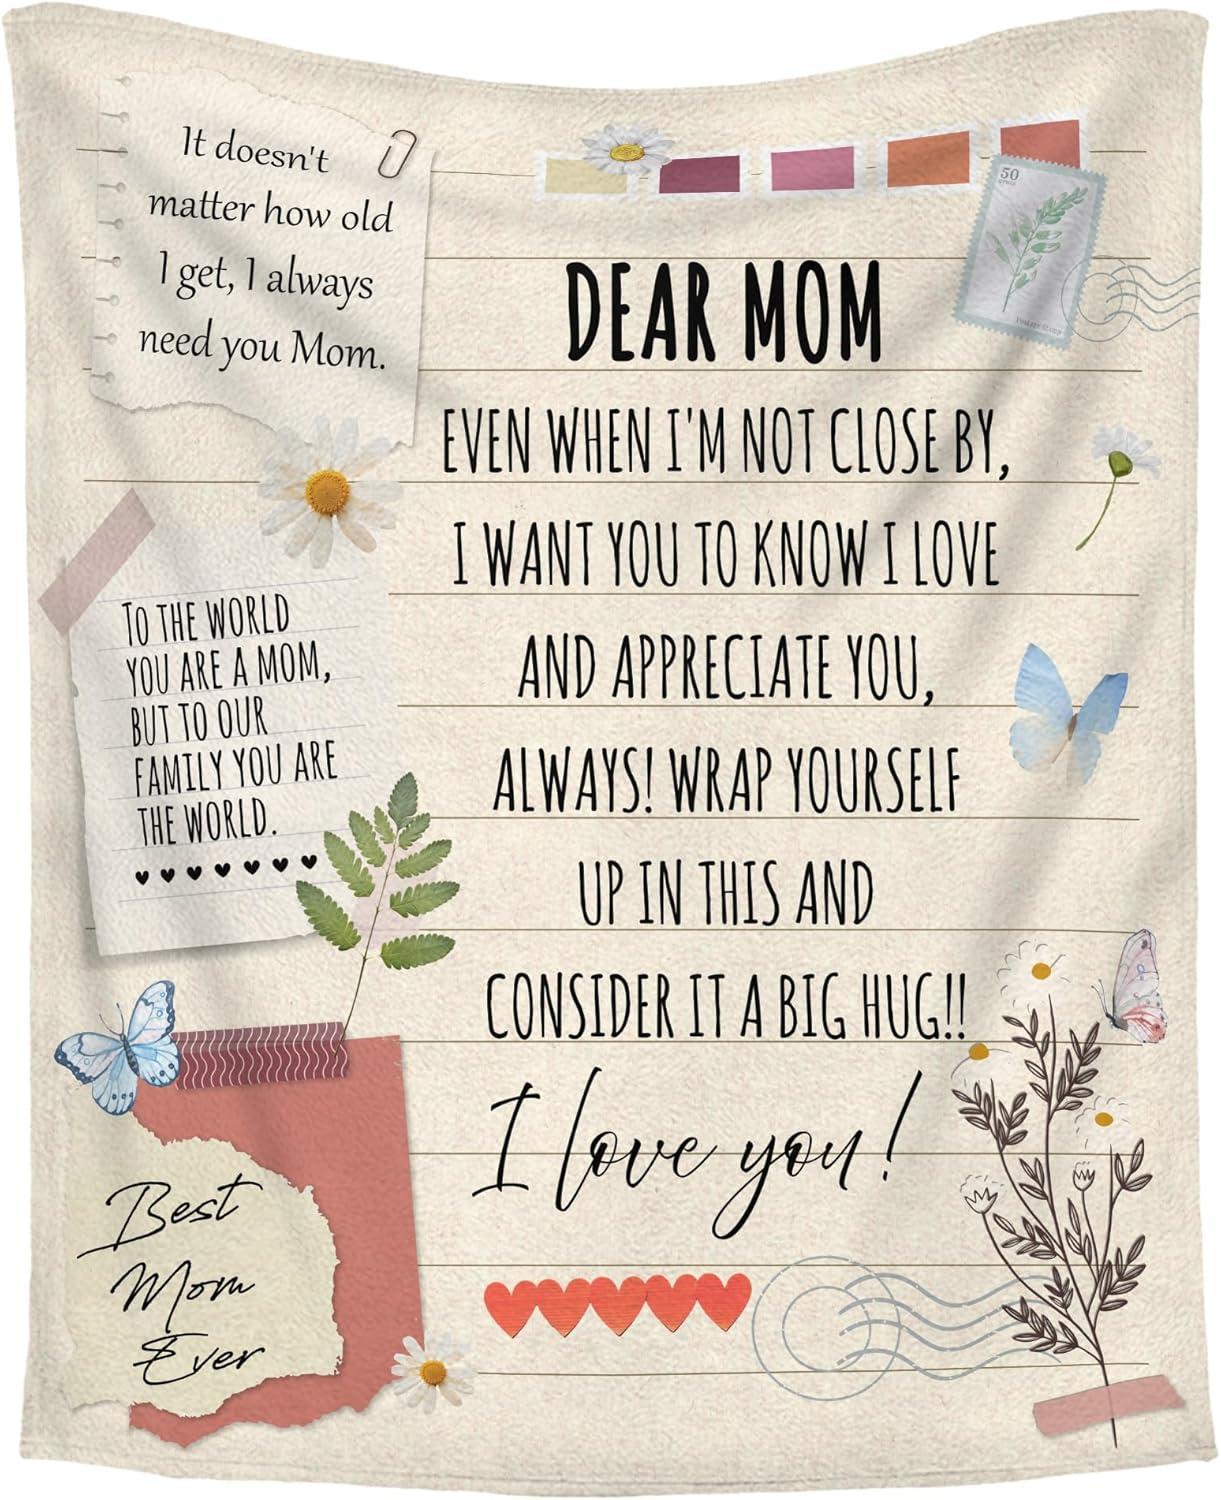 It doesn't
matter how old
I get, I always
need you Mom.
50
DEAR MOM
EVEN WHEN I'M NOT CLOSE BY,
I WANT YOU TO KNOW I LOVE
AND APPRECIATE YOU,
ALWAYS! WRAP YOURSELF
UP IN THIS AND
CONSIDER IT A BIG HUG!!
I love you!
TO THE WORLD
YOU ARE A MOM,
BUT TO OUR
FAMILY YOU ARE
THE WORLD.
Best
Mom
Ever